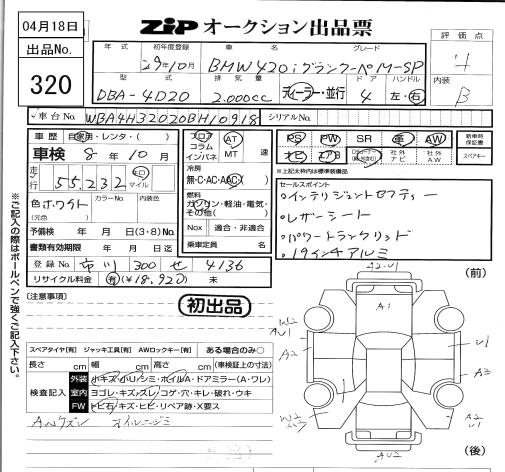 04月18日
ZIP オークション出品票
評価点
4
内装
B
出品No.
320
年式 初年度登録 車名 グレード
29年10月 BMW420i グランクーペ M-SP
型式 排気量 ドア ハンドル
DBA-4D20 2.000cc ディーラー・並行 4 左・右
車台No. WBA4H32020BH10918 シリアルNo.
車歴 自家用・レンタ・( )
フロア コラム インパネ AT MT 速
PS PW SR 革 AW
ナビ エアB 社外ナビ 社外AW
新車時保証書
スペアキー
車検 8年10月
走行 55,232 キロ マイル
冷房 無・C・AC・AAC
燃料 ガソリン・軽油・電気・その他( )
※上記太枠内は標準装備品
色 ホワイト カラーNo. 内装色
(元色)
Nox 適合・非適合
乗車定員 名
予備検 年 月 日(3・8)No.
書類有効期限 年 月 日迄
登録No. 市川 300 せ 4136
リサイクル料金 有(¥18,920) 未
セールスポイント
・インテリジェントセフティー
・レザーシート
・パワートランクリッド
・19インチアルミ
※ご記入の際はボールペンで強くご記入下さい。
(注意事項)
初出品
スペアタイヤ[有] ジャッキ工具[有] AWロックキー[有] ある場合のみ○
長さ cm 幅 cm 高さ cm (車検証上の寸法)
検査記入
外装 小キズ・小U・シミ・ホイルA・ドアミラー(A・ワレ)
室内 ヨゴレ・キズ・スレ・コゲ・穴・キレ・破れ・ウキ
FW トビ石・キズ・ヒビ・リペア跡・X要ス
(前)
A2U1
A1
W2
AU1
A2
U1
A3
W2
A2
U1
AU2
(後)